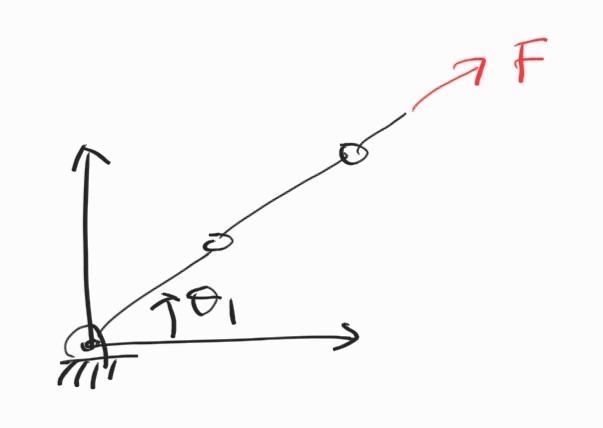 F
θ₁